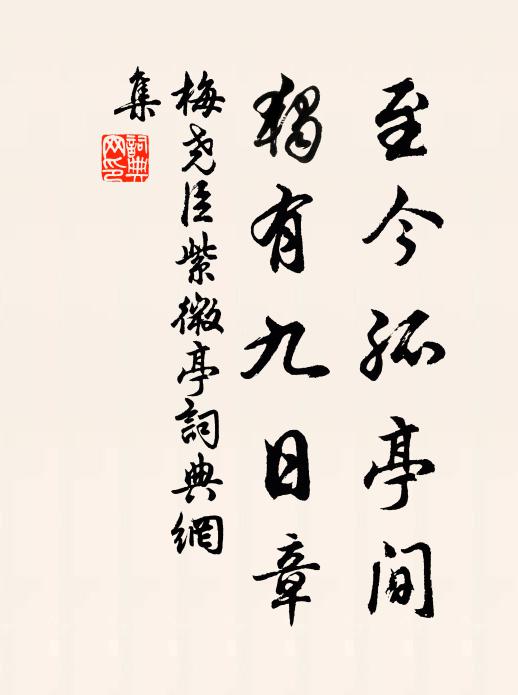 至今孤亭间
独有九日章
梅尧臣紫微亭詞典網
集
詞典
网印